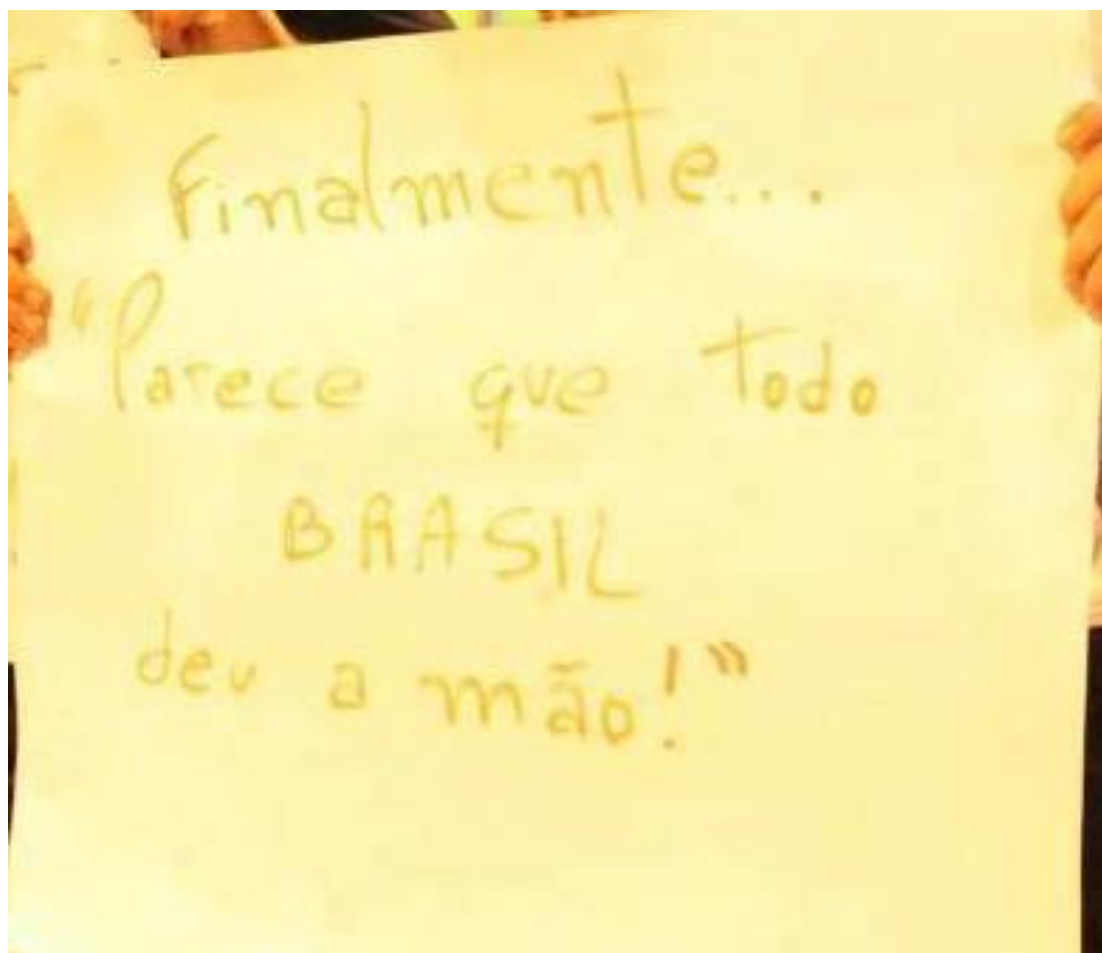 Finalmente...
"Parece que todo
BRASIL
deu a mão!"